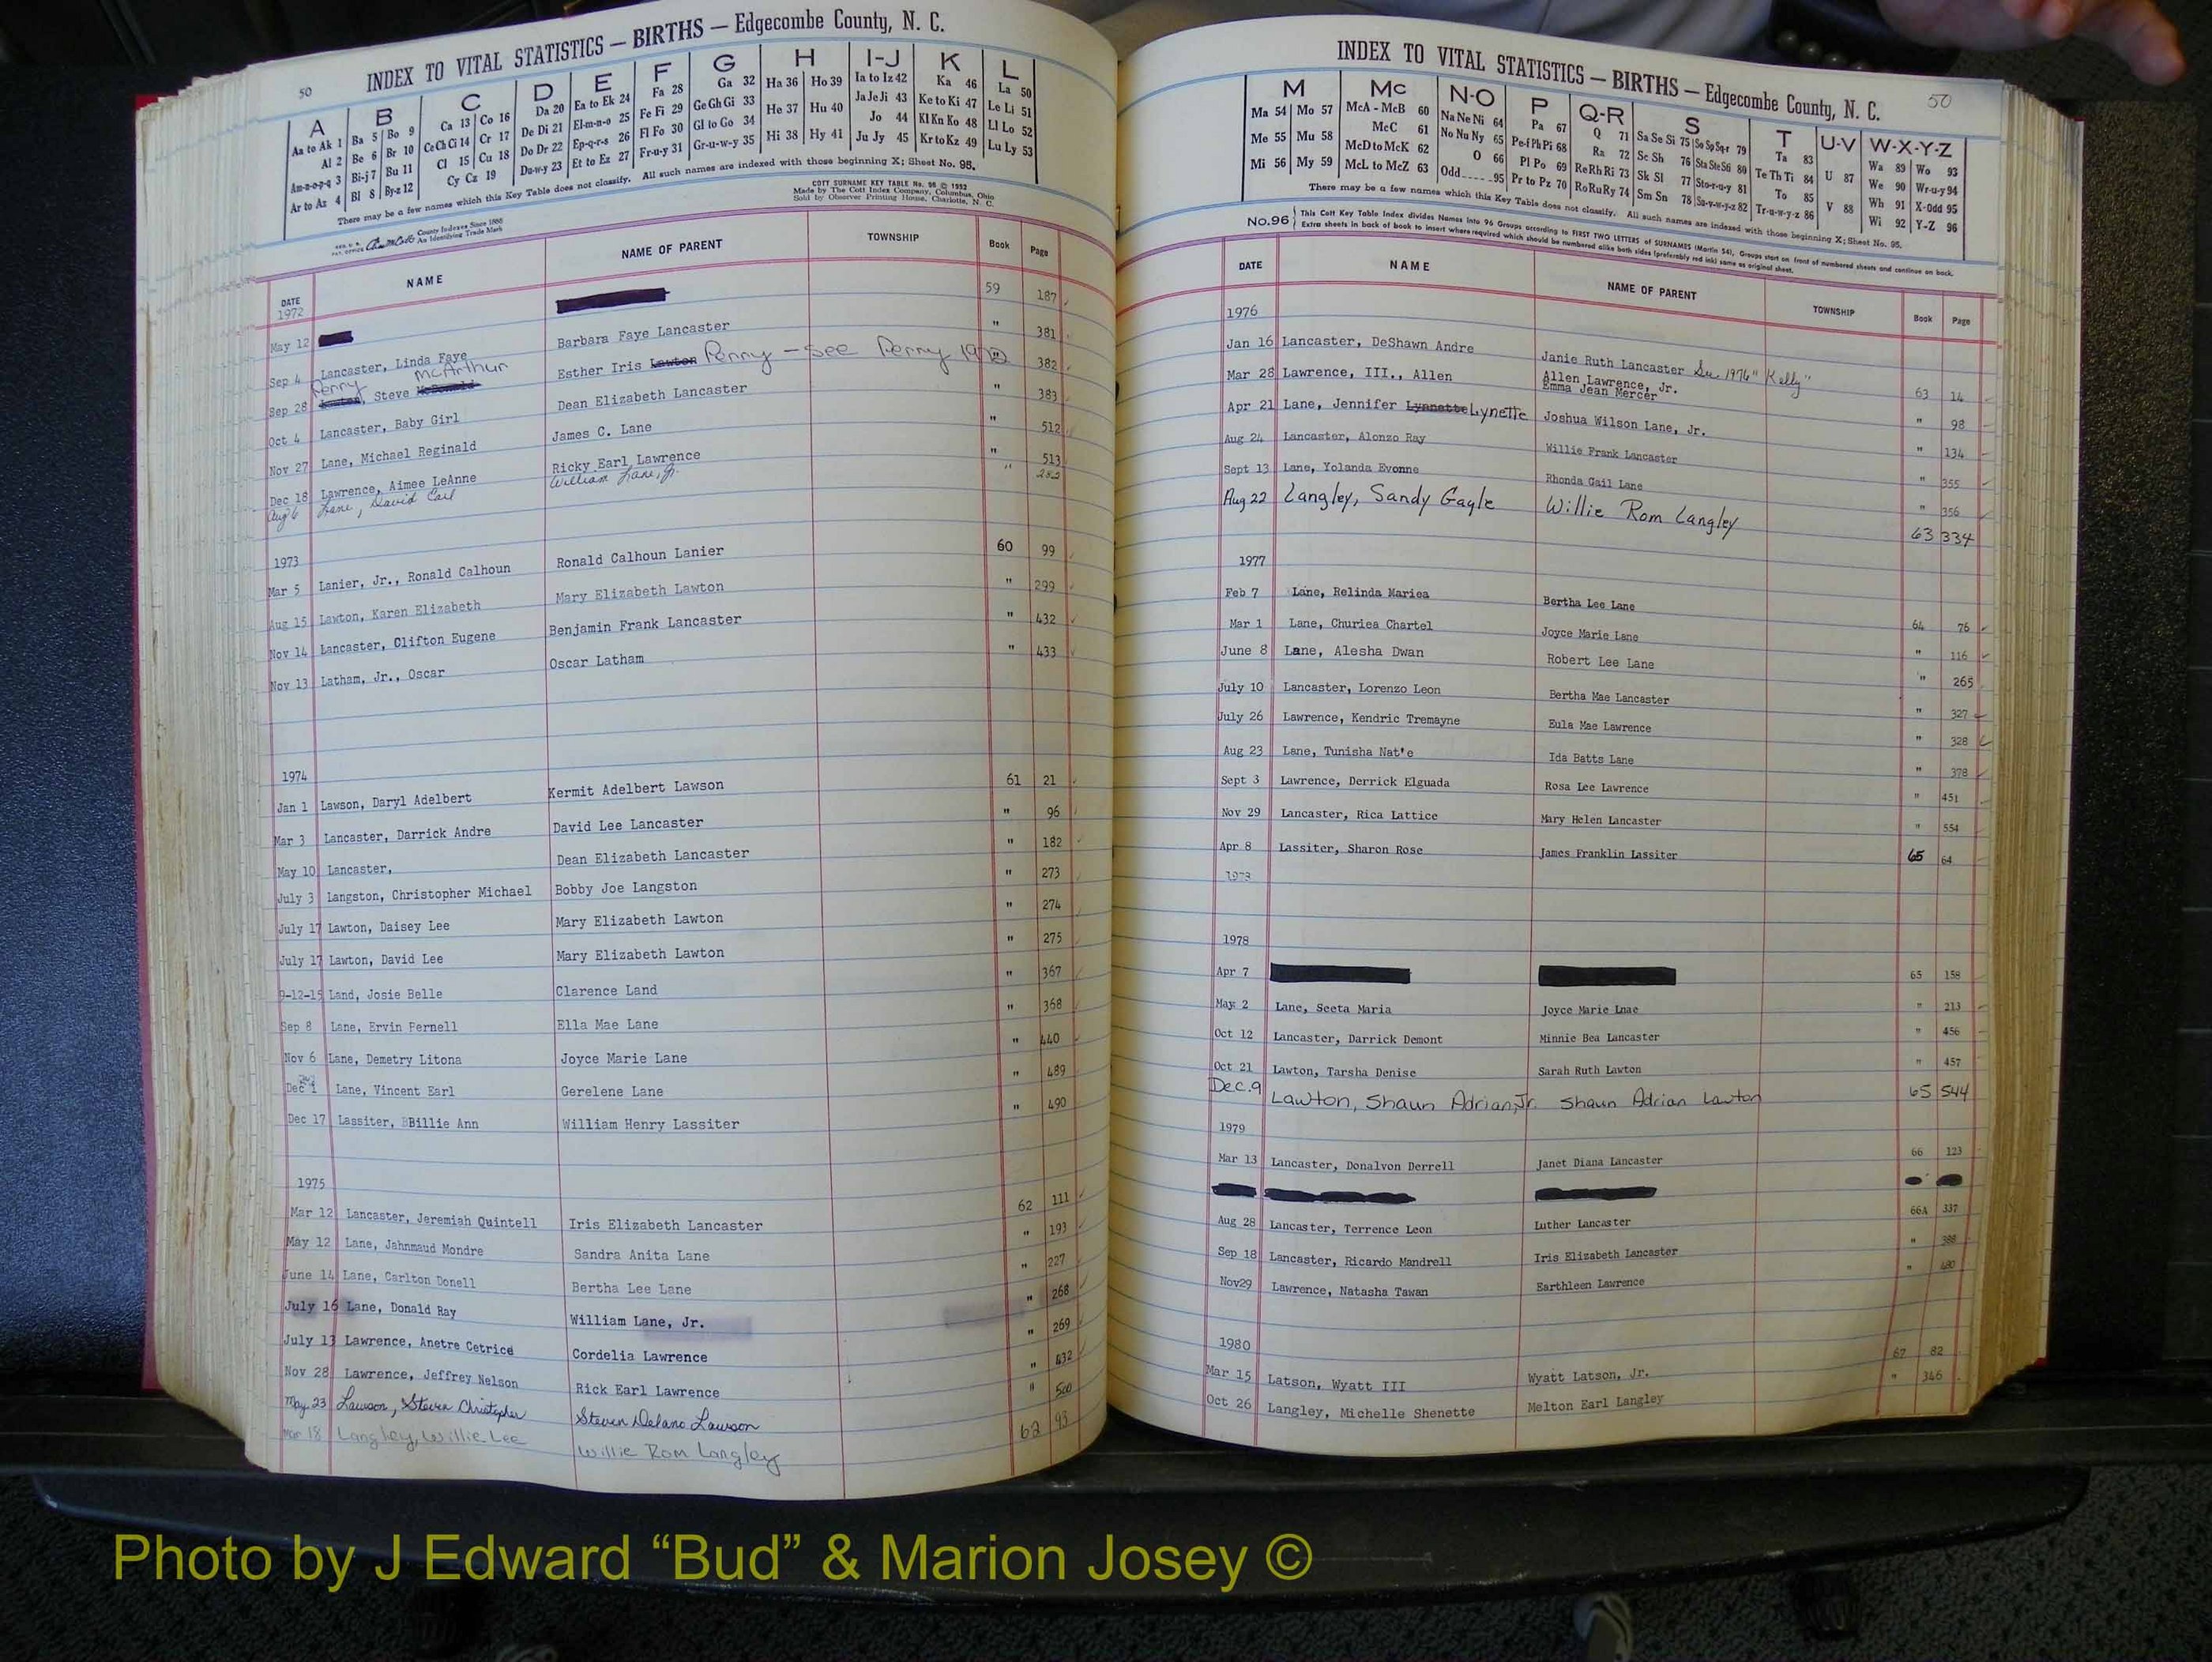 50
INDEX TO VITAL STATISTICS — BIRTHS — Edgecombe County, N. C.
A B C D E F G H I-J K L
Aa to Ak 1 Ba 5 Bo 9 Ca 13 Co 16 Da 20 Ea to Ek 24 Fa 28 Ga 32 Ha 36 Ho 39 Ia to Iz 42 Ka 46 La 50
Al 2 Be 6 Br 10 Ce Ch Ci 14 Cr 17 De Di 21 El-m-n-o 25 Fe Fi 29 Ge Gh Gi 33 He 37 Hu 40 Ja Je Ji 43 Ke to Ki 47 Le Li 51
Am-n-o-p-q 3 Bi-j 7 Bu 11 Cl 15 Cu 18 Do Dr 22 Ep-q-r-s 26 Fl Fo 30 Gl to Go 34 Hi 38 Hy 41 Jo 44 Kl Kn Ko 48 Ll Lo 52
Ar to Az 4 Bl 8 By-z 12 Cy Cz 19 Du-w-y 23 Et to Ez 27 Fr-u-y 31 Gr-u-w-y 35 Ju Jy 45 Kr to Kz 49 Lu Ly 53
There may be a few names which this Key Table does not classify. All such names are indexed with those beginning X; Sheet No. 95.
County Indexes Since 1888
An Identifying Trade Mark
COTT SURNAME KEY TABLE No. 96 © 1952
Made by The Cott Index Company, Columbus, Ohio
Sold by Observer Printing House, Charlotte, N. C.
DATE NAME NAME OF PARENT TOWNSHIP Book Page
1972
May 12 59 187
Sep 4 Lancaster, Linda Faye Barbara Faye Lancaster " 381
Sep 28 Perry, Steve McDonald McArthur Esther Iris Lawton Perry — See Perry 1972 " 382
Oct 4 Lancaster, Baby Girl Dean Elizabeth Lancaster " 383
Nov 27 Lane, Michael Reginald James C. Lane " 512
Dec 18 Lawrence, Aimee LeAnne Ricky Earl Lawrence " 513
Aug 6 Lane, David Carl William Lane, Jr. " 282
1973
Mar 5 Lanier, Jr., Ronald Calhoun Ronald Calhoun Lanier 60 99
Aug 15 Lawton, Karen Elizabeth Mary Elizabeth Lawton " 299
Nov 14 Lancaster, Clifton Eugene Benjamin Frank Lancaster " 432
Nov 13 Latham, Jr., Oscar Oscar Latham " 433
1974
Jan 1 Lawson, Daryl Adelbert Kermit Adelbert Lawson 61 21
Mar 3 Lancaster, Darrick Andre David Lee Lancaster " 96
May 10 Lancaster, Dean Elizabeth Lancaster " 182
July 3 Langston, Christopher Michael Bobby Joe Langston " 273
July 17 Lawton, Daisey Lee Mary Elizabeth Lawton " 274
July 17 Lawton, David Lee Mary Elizabeth Lawton " 275
9-12-15 Land, Josie Belle Clarence Land " 367
Sep 8 Lane, Ervin Fernell Ella Mae Lane " 368
Nov 6 Lane, Demetry Litona Joyce Marie Lane " 440
Dec 1 Lane, Vincent Earl Gerelene Lane " 489
Dec 17 Lassiter, BBillie Ann William Henry Lassiter " 490
1975
Mar 12 Lancaster, Jeremiah Quintell Iris Elizabeth Lancaster 62 111
May 12 Lane, Jahnmaud Mondre Sandra Anita Lane " 193
June 14 Lane, Carlton Donell Bertha Lee Lane " 227
July 16 Lane, Donald Ray William Lane, Jr. " 268
July 13 Lawrence, Anetre Cetrice Cordelia Lawrence " 269
Nov 28 Lawrence, Jeffrey Nelson Rick Earl Lawrence " 432
May 23 Lawson, Steven Christopher Steven Delano Lawson " 500
Mar 18 Langley, Willie Lee Willie Rom Langley 62 93
INDEX TO VITAL STATISTICS — BIRTHS — Edgecombe County, N. C. 50
M Mc N-O P Q-R S T U-V W-X-Y-Z
Ma 54 Mo 57 McA - McB 60 Na Ne Ni 64 Pa 67 Q 71 Sa Se Si 75 So Sp Sq-r 79 Ta 83 U 87 Wa 89 Wo 93
Me 55 Mu 58 McC 61 No Nu Ny 65 Pe-f Ph Pi 68 Ra 72 Sc Sh 76 Sta Ste Sti 80 Te Th Ti 84 V 88 We 90 Wr-u-y 94
Mi 56 My 59 McD to McK 62 O 66 Pl Po 69 Re Rh Ri 73 Sk Sl 77 Sto-r-u-y 81 To 85 Wh 91 X-Odd 95
McL to McZ 63 Odd 95 Pr to Pz 70 Ro Ru Ry 74 Sm Sn 78 Su-v-w-y-z 82 Tr-u-w-y-z 86 Wi 92 Y-Z 96
There may be a few names which this Key Table does not classify. All such names are indexed with those beginning X; Sheet No. 95.
No. 96 This Cott Key Table Index divides Names into 96 Groups according to FIRST TWO LETTERS of SURNAMES (Martin 54). Groups start on front of numbered sheets and continue on back.
Extra sheets in back of book to insert where required which should be numbered alike both sides (preferably red ink) same as original sheet.
DATE NAME NAME OF PARENT TOWNSHIP Book Page
1976
Jan 16 Lancaster, DeShawn Andre Janie Ruth Lancaster See 1976 "Kelly" 63 14
Mar 28 Lawrence, III., Allen Allen Lawrence, Jr. Emma Jean Mercer " 98
Apr 21 Lane, Jennifer Lynnette Lynette Joshua Wilson Lane, Jr. " 134
Aug 24 Lancaster, Alonzo Ray Willie Frank Lancaster " 355
Sept 13 Lane, Yolanda Evonne Rhonda Gail Lane " 356
Aug 22 Langley, Sandy Gagle Willie Rom Langley 63 334
1977
Feb 7 Lane, Relinda Mariea Bertha Lee Lane 64 76
Mar 1 Lane, Churiea Chartel Joyce Marie Lane " 116
June 8 Lane, Alesha Dwan Robert Lee Lane " 265
July 10 Lancaster, Lorenzo Leon Bertha Mae Lancaster " 327
July 26 Lawrence, Kendric Tremayne Eula Mae Lawrence " 328
Aug 23 Lane, Tunisha Nat'e Ida Batts Lane " 378
Sept 3 Lawrence, Derrick Elguada Rosa Lee Lawrence " 451
Nov 29 Lancaster, Rica Lattice Mary Helen Lancaster " 554
Apr 8 Lassiter, Sharon Rose James Franklin Lassiter 65 64
1978
Apr 7 65 158
May 2 Lane, Seeta Maria Joyce Marie Lnae " 213
Oct 12 Lancaster, Darrick Demont Minnie Bea Lancaster " 456
Oct 21 Lawton, Tarsha Denise Sarah Ruth Lawton " 457
Dec. 9 Lawton, Shaun Adrian, Jr. Shaun Adrian Lawton 65 544
1979
Mar 13 Lancaster, Donalvon Derrell Janet Diana Lancaster 66 123
Aug 28 Lancaster, Terrence Leon Luther Lancaster 66A 337
Sep 18 Lancaster, Ricardo Mandrell Iris Elizabeth Lancaster " 388
Nov29 Lawrence, Natasha Tawan Earthleen Lawrence " 480
1980
Mar 15 Latson, Wyatt III Wyatt Latson, Jr. 67 82
Oct 26 Langley, Michelle Shenette Melton Earl Langley " 346
Photo by J Edward “Bud” & Marion Josey ©